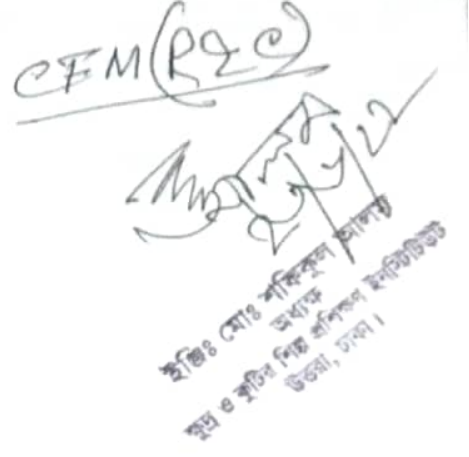 CFM(P&C)
ইঞ্জিঃ মোঃ শফিকুল আলম
অধ্যক্ষ
ক্ষুদ্র ও কুটির শিল্প প্রশিক্ষণ ইনস্টিটিউট
উত্তরা, ঢাকা।